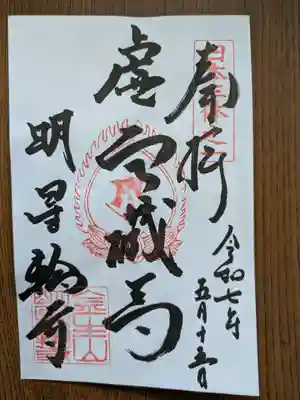 奉拝
令和七年
五月十五日
虚空蔵
明星輪寺
金生山